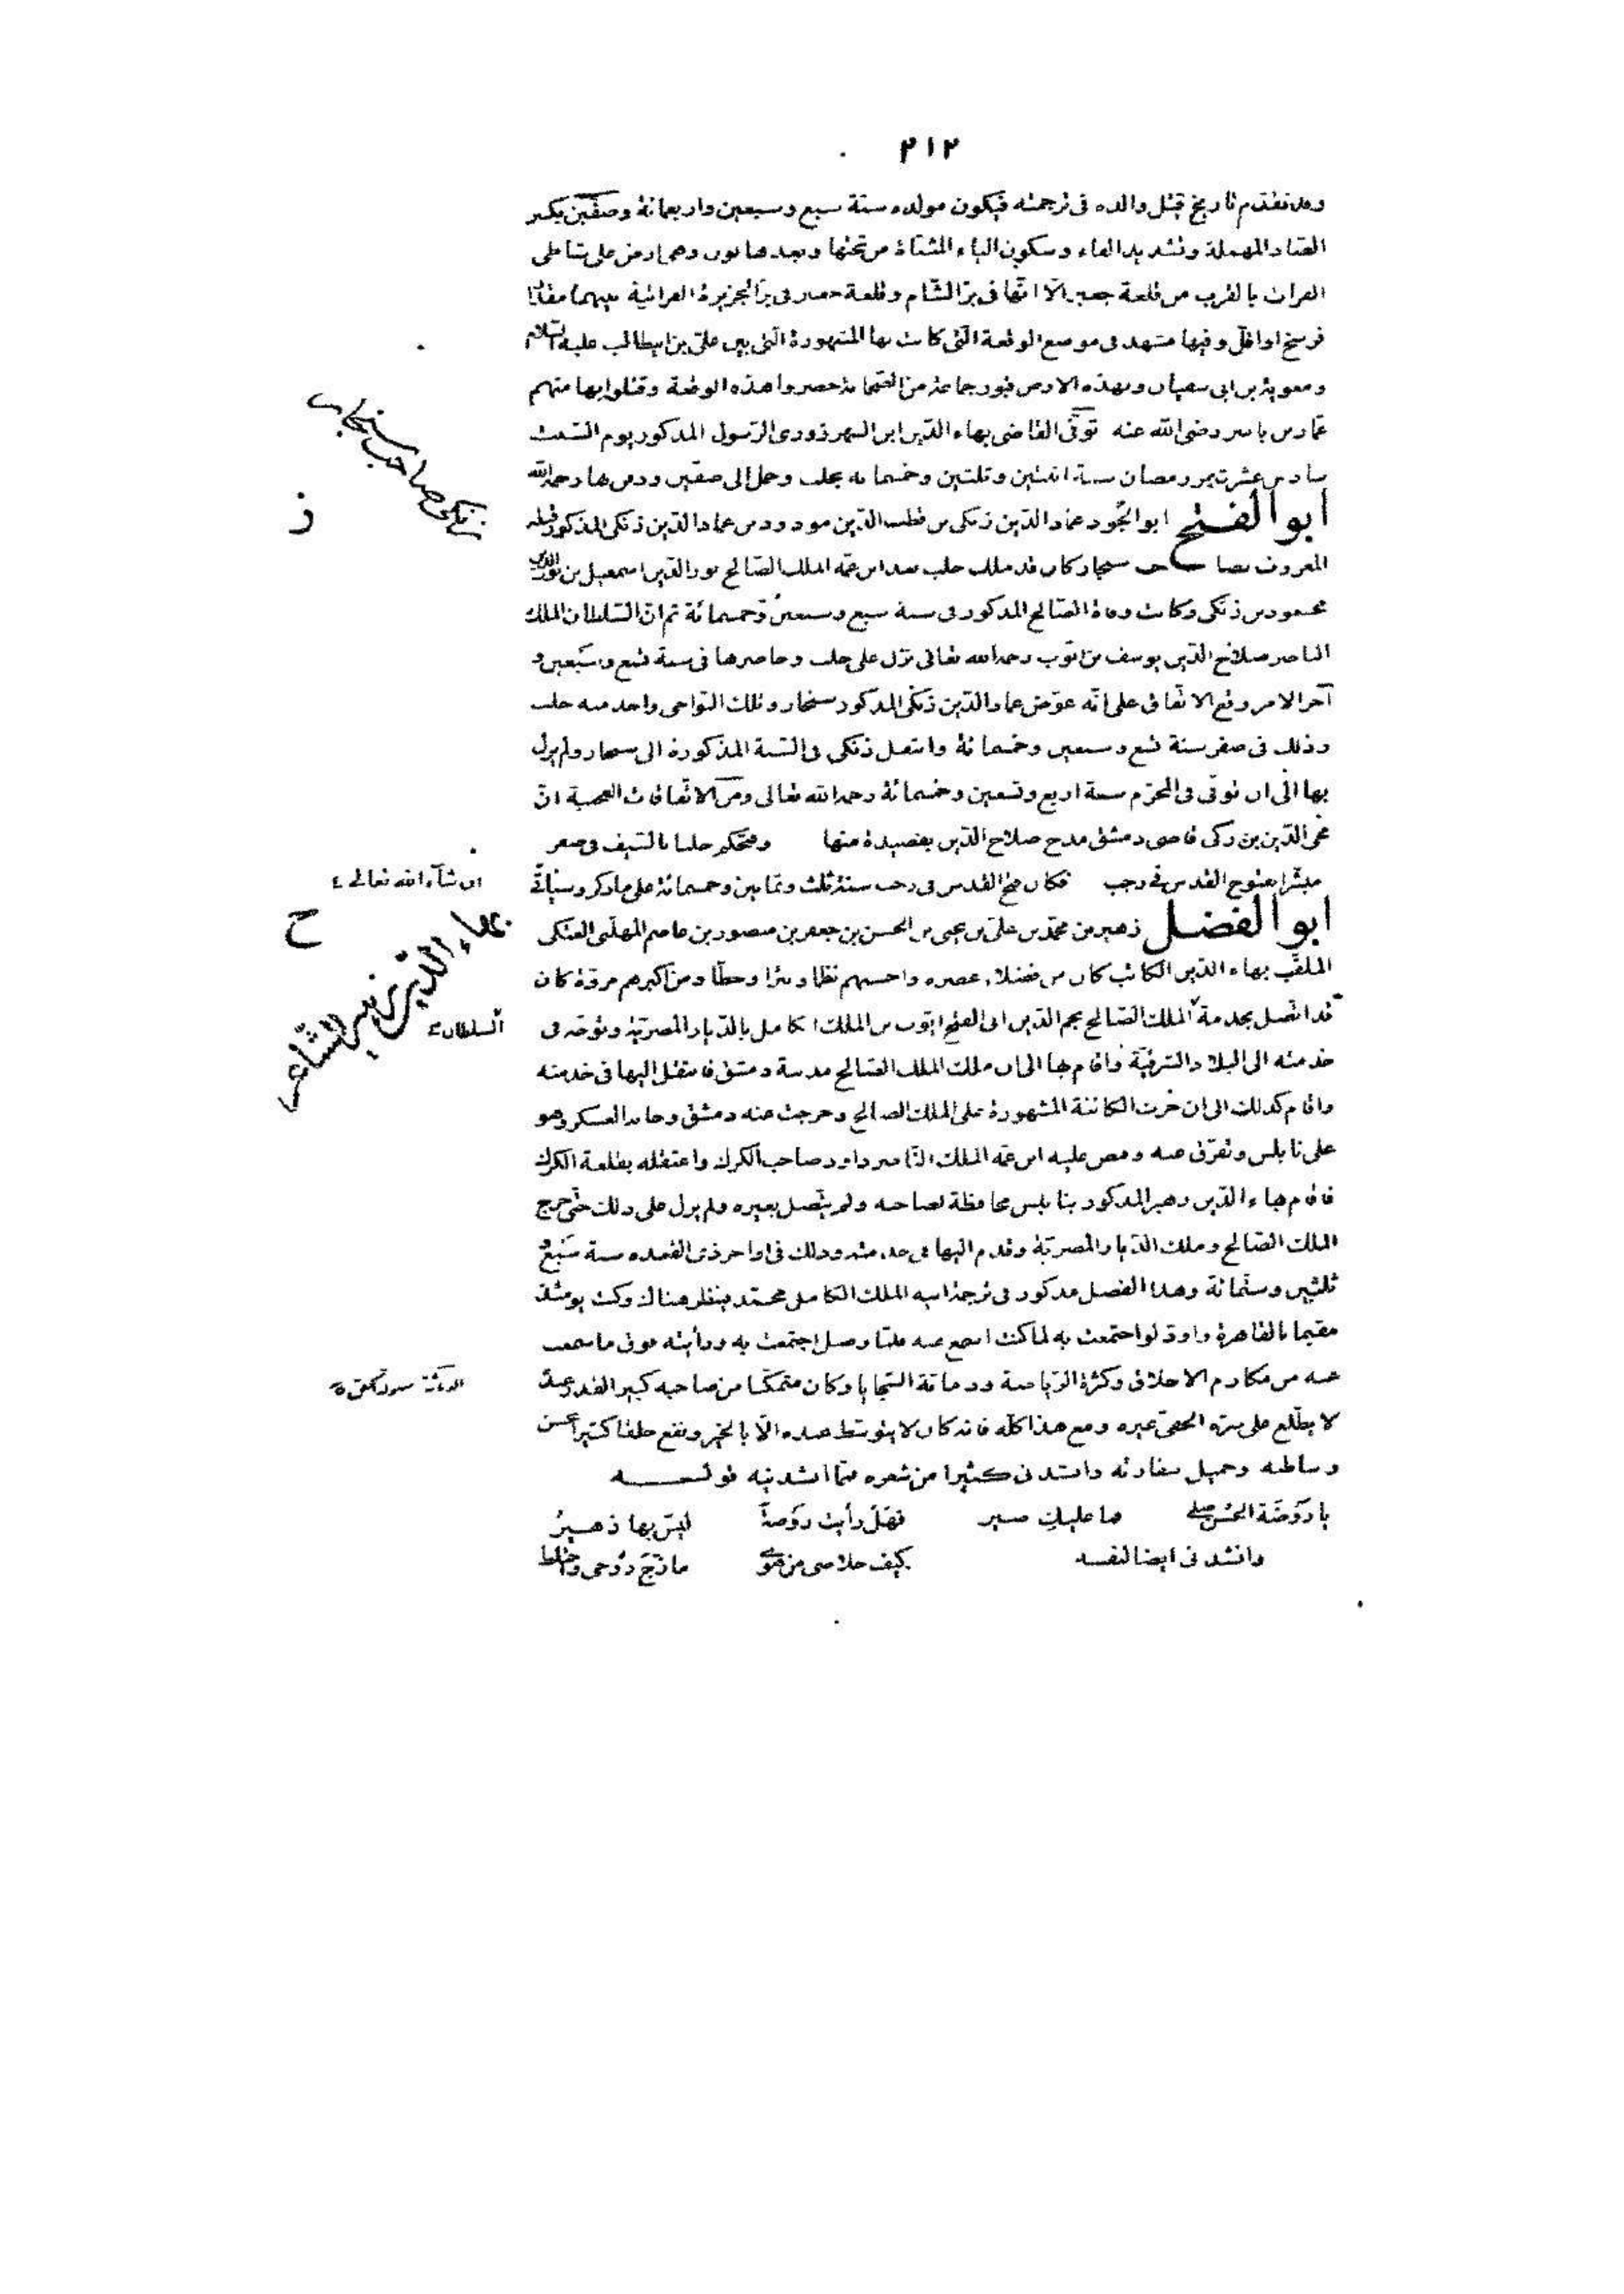 ٢١٢
وقد تقدّم تاريخ قتل والده فى ترجمته فيكون مولده سنة سبع وسبعين واربعمائة وصفّين بكسر
الصاد المهملة وتشديد الفاء وسكون الياء المثناة من تحتها وبعدها نون وهى ارض على شاطى
الفرات بالقرب من قلعة جعبر الّا انّها فى برّ الشّام وقلعة جعبر فى برّ الجزيرة الفراتية بينهما مقدار
فرسخ او اقلّ وفيها مشهد فى موضع الوقعة الّتى كانت بها المشهورة الّتى بين علىّ بن ابيطالب عليه السّلام
ومعوية بن ابى سفيان وبهذه الارض قبور جماعة من الصّحابة حضروا هذه الوقعة وقتلوا بها منهم
عمّار بن ياسر رضى الله عنه توفّى القاضى بهاء الدّين ابن الشهرزورى الرّسول المذكور يوم السّبت
سادس عشر شهر رمضان سنة اثنتين وثلثين وخمسمائة بحلب وحمل الى صفّين ودفن بها رحمه الله
ابو الفتح ابو الجود عماد الدّين زنكى بن قطب الدّين مودود بن عماد الدّين زنكى المذكور قبله
المعروف بصاحب سنجار كان قد ملك حلب بعد ابن عمّه الملك الصّالح نور الدّين اسمعيل بن نور الدين
محمود بن زنكى وكانت وفاة الصّالح المذكور فى سنة سبع وسبعين وخمسمائة ثم انّ السّلطان الملك
الناصر صلاح الدّين يوسف بن ايّوب رحمه الله تعالى نزل على حلب وحاصرها فى سنة تسع وسبعين و
آخر الامر وقع الاتّفاق على انّه عوّض عماد الدّين زنكى المذكور سنجار وتلك النّواحى واخذ منه حلب
وذلك فى صفر سنة تسع وسبعين وخمسمائة وانتقل زنكى فى السّنة المذكورة الى سنجار ولم يزل
بها الى ان توفّى فى المحرّم سنة اربع وتسعين وخمسمائة رحمه الله تعالى ومن الاتّفاقات العجيبة انّ
محى الدّين بن زكى قاضى دمشق مدح صلاح الدّين بقصيدة منها وفتحكم حلبا بالسّيف فى صفر
مبشّر بفتوح القدس فى رجب فكان فتح القدس فى رجب سنة ثلث وثمانين وخمسمائة على ما ذكر وسيأتى
ان شآء الله تعالى
زنكى صاحب سنجار
ز
ابو الفضل زهير بن محمّد بن علىّ بن يحيى بن الحسن بن جعفر بن منصور بن عاصم المهلّبى العتكى
الملقّب بهاء الدّين الكاتب كان من فضلاء عصره واحسنهم نظما ونثرا وخطّا ومن اكبرهم مروّة كان
قد اتّصل بخدمة الملك الصّالح نجم الدّين ابى الفتح ايّوب بن الملك الكامل بالدّيار المصريّة وتوجّه فى
السلطان
خدمته الى البلاد الشرقيّة واقام بها الى ان ملك الملك الصّالح مدينة دمشق فانتقل اليها فى خدمته
واقام كذلك الى ان جرت الكائنة المشهورة على الملك الصالح وخرجت عنه دمشق وخانه العسكر وهو
على نابلس وتفرّق عنه وقبض عليه ابن عمّه الملك النّاصر داود صاحب الكرك واعتقله بقلعة الكرك
فاقام بهاء الدّين زهير المذكور بنابلس محافظة لصاحبه ولم يتّصل بغيره ولم يزل على ذلك حتّى خرج
الملك الصّالح وملك الدّيار المصريّة وقدم اليها فى خدمته وذلك فى اواخر ذى القعدة سنة سبع و
ثلثين وستّمائة وهذا الفصل مذكور فى ترجمة ابيه الملك الكامل محمّد فينظر هناك وكنت يومئذ
مقيما بالقاهرة واودّ لو اجتمعت به لما كنت اسمع عنه فلمّا وصل اجتمعت به ورأيته فوق ما سمعت
عنه من مكارم الاخلاق وكثرة الرّياضة ودماثة السّجايا وكان متمكّنا من صاحبه كبير القدر عنده
لا يطّلع على سرّه الخفىّ غيره ومع هذا كلّه فانه كان لا يتوسّط عنده الّا بالخير ونفع خلقا كثيرا بحسن
وساطته وجميل سفارته وانشدنى كثيرا من شعره فمّما انشدنيه قوله
يا رَوضَة الحُسْن صِلى فما عليك ضير فهَل رأيت رَوضةً ليسَ بها زهيرُ
وانشدنى ايضا لنفسه كيف خلاصى من هوى مازَجَ رُوحى واختلط
بهاء الدّين زهير الشّاعر
ح